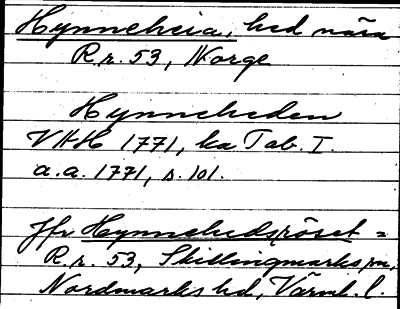 Hynneheia, hed nära
R.r. 53, Norge
Hynneheden
VAH 1771, ka Tab. I.
a.a. 1771, s. 101.
Jfr Hynnehedsröset =
R.r. 53, Skillingmarks sn,
Nordmarks hd, Värml. l.